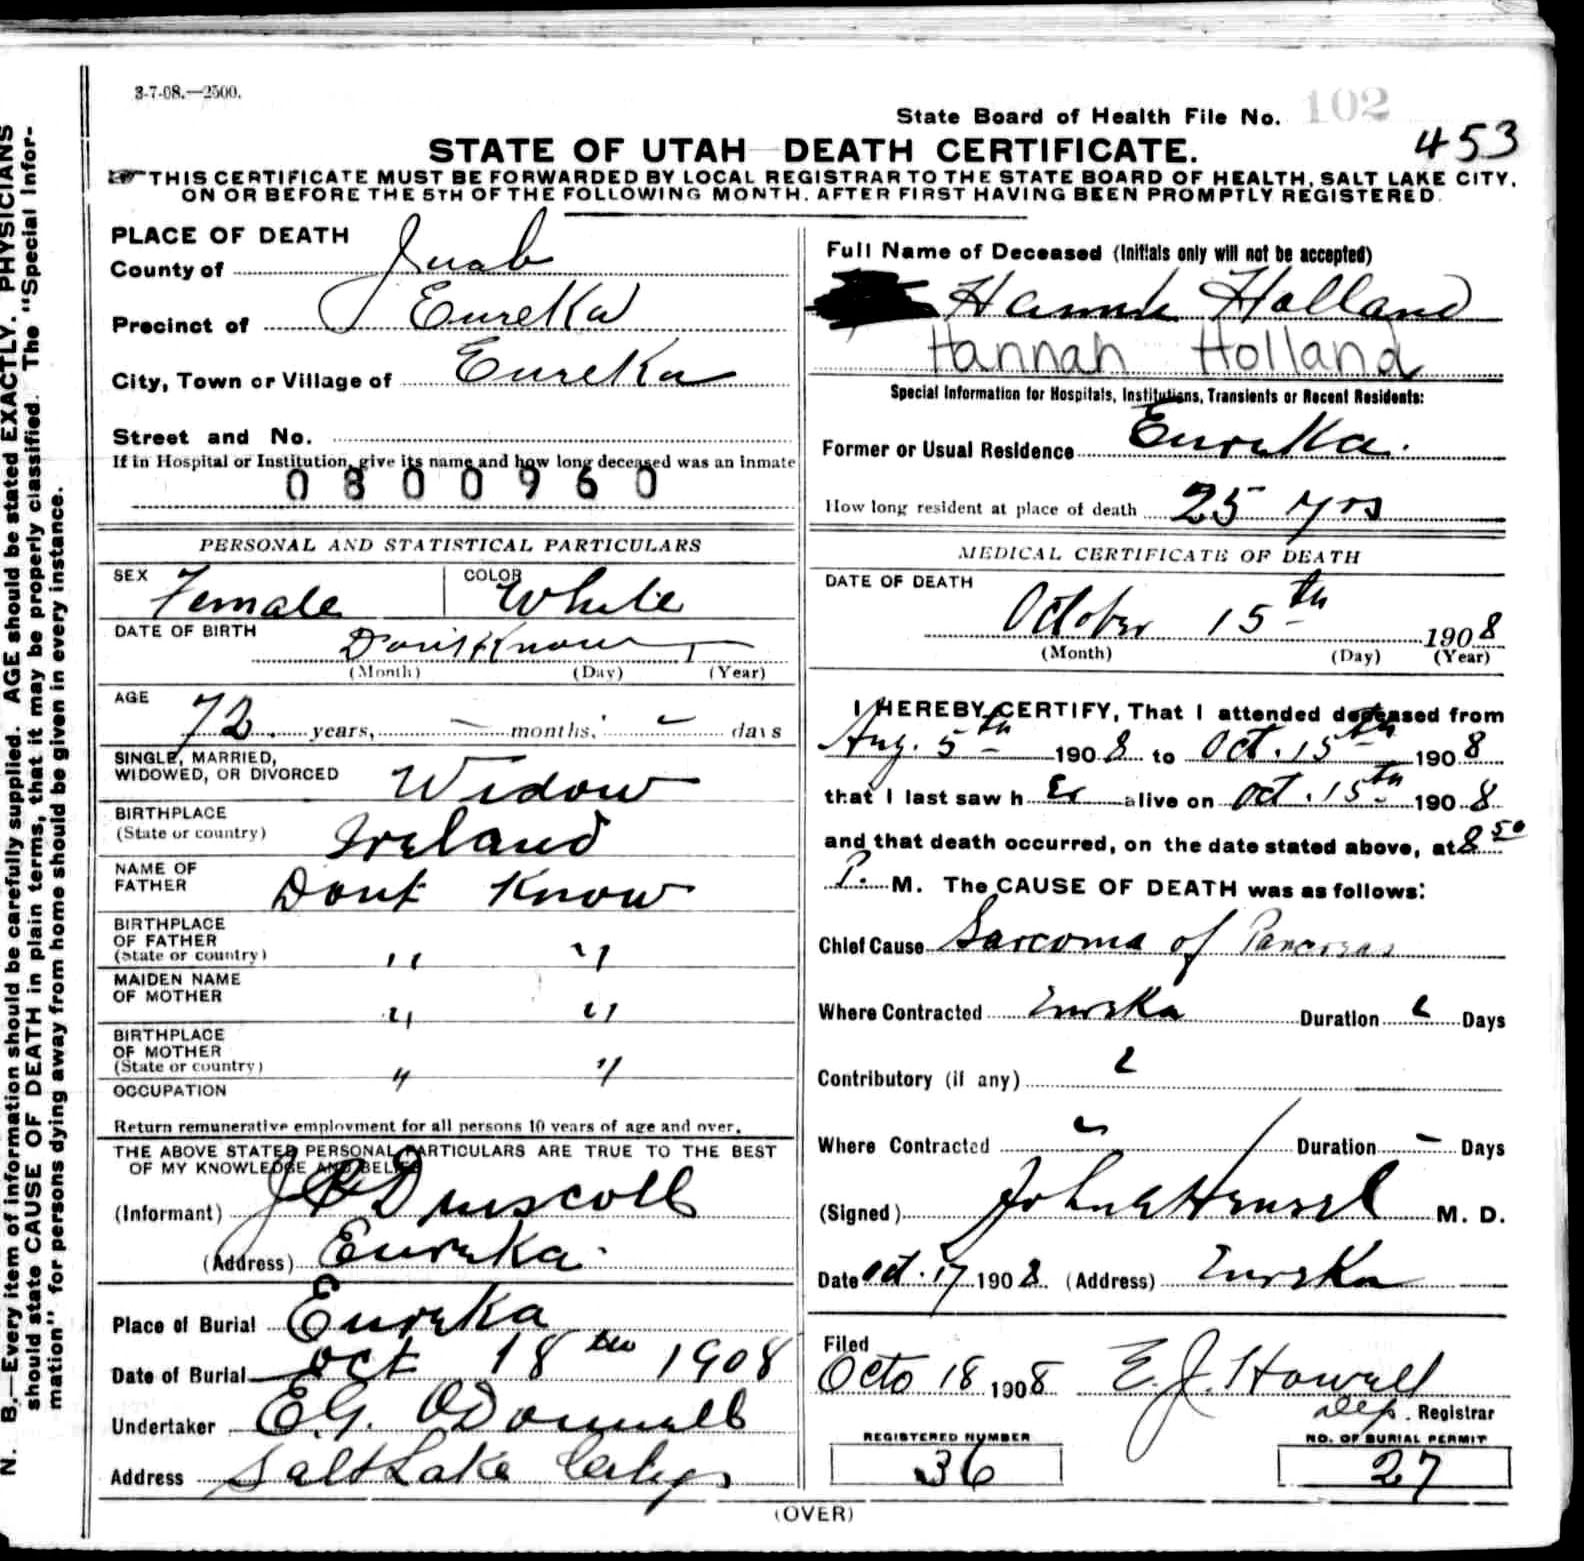 3-7-08.—2500.
State Board of Health File No. 102
453
STATE OF UTAH DEATH CERTIFICATE.
THIS CERTIFICATE MUST BE FORWARDED BY LOCAL REGISTRAR TO THE STATE BOARD OF HEALTH, SALT LAKE CITY,
ON OR BEFORE THE 5TH OF THE FOLLOWING MONTH. AFTER FIRST HAVING BEEN PROMPTLY REGISTERED.
N. B.—Every item of information should be carefully supplied. AGE should be stated EXACTLY. PHYSICIANS
should state CAUSE OF DEATH in plain terms, that it may be properly classified. The "Special Infor-
mation" for persons dying away from home should be given in every instance.
PLACE OF DEATH
County of Juab
Precinct of Eureka
City, Town or Village of Eureka
Street and No.
If in Hospital or Institution, give its name and how long deceased was an inmate
0800960
PERSONAL AND STATISTICAL PARTICULARS
SEX Female COLOR White
DATE OF BIRTH Don't Know
(Month) (Day) (Year)
AGE 72 years, — months, — days
SINGLE, MARRIED,
WIDOWED, OR DIVORCED Widow
BIRTHPLACE
(State or country) Ireland
NAME OF
FATHER Dont Know
BIRTHPLACE
OF FATHER
(State or country) " "
MAIDEN NAME
OF MOTHER " "
BIRTHPLACE
OF MOTHER
(State or country) " "
OCCUPATION
Return remunerative employment for all persons 10 years of age and over.
THE ABOVE STATED PERSONAL PARTICULARS ARE TRUE TO THE BEST
OF MY KNOWLEDGE AND BELIEF
(Informant) Driscoll
(Address) Eureka.
Place of Burial Eureka
Date of Burial Oct 18th 1908
Undertaker E.G. O'Donnell
Address Salt Lake City
Full Name of Deceased (Initials only will not be accepted)
Hannah Holland
Hannah Holland
Special Information for Hospitals, Institutions, Transients or Recent Residents:
Former or Usual Residence Eureka.
How long resident at place of death 25 yrs
MEDICAL CERTIFICATE OF DEATH
DATE OF DEATH
October 15th 1908
(Month) (Day) (Year)
I HEREBY CERTIFY, That I attended deceased from
Aug. 5th 1908 to Oct. 15th 1908
that I last saw h er alive on Oct. 15th 1908
and that death occurred, on the date stated above, at 8 50
P. M. The CAUSE OF DEATH was as follows:
Chief Cause Sarcoma of Pancreas
Where Contracted Eureka Duration Days
Contributory (if any)
Where Contracted Duration — Days
(Signed) John Hensel M. D.
Date Oct. 17 1908 (Address) Eureka
Filed
Octo 18 1908 E. J. Howell
Dep. Registrar
REGISTERED NUMBER
36
NO. OF BURIAL PERMIT
27
(OVER)